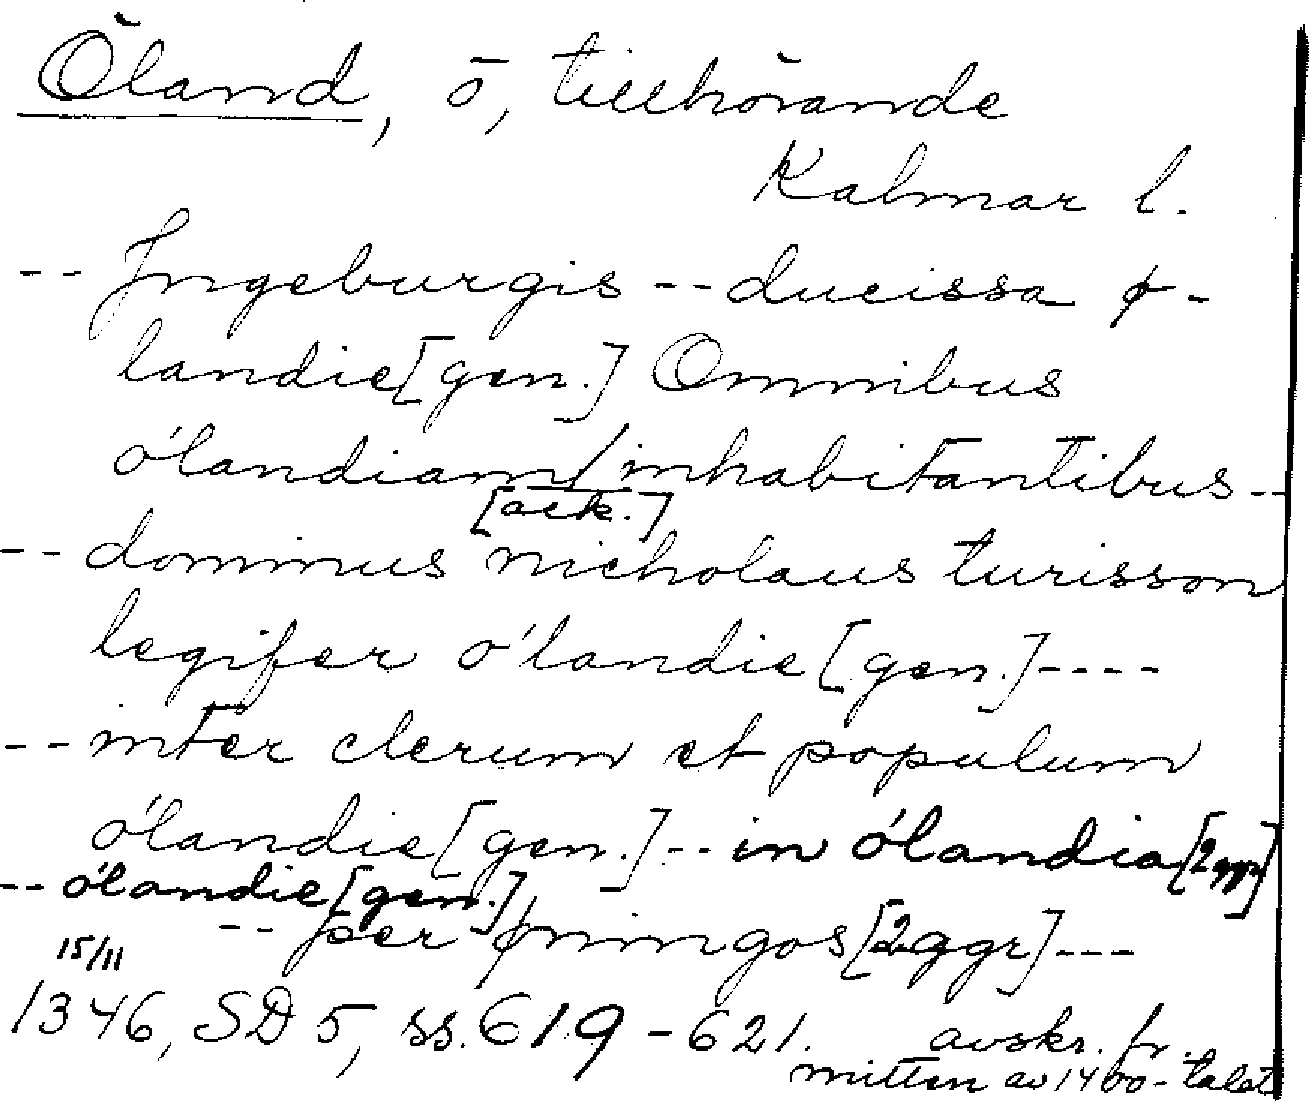 Öland, ö, tillhörande
Kalmar l.
-- Ingeburgis -- ducissa ø-
landie [gen.] Omnibus
ólandiam / inhabitantibus --
[ack.]
-- dominus nicholaus turisson
legifer ólandie [gen.] ----
-- inter clerum et populum
ólandie [gen.] -- in ólandia [2ggr]
-- ólandie [gen.]
-- per øningos [2ggr] ---
15/11
1346, SD 5, ss. 619-621. avskr. fr.
mitten av 1400-talet